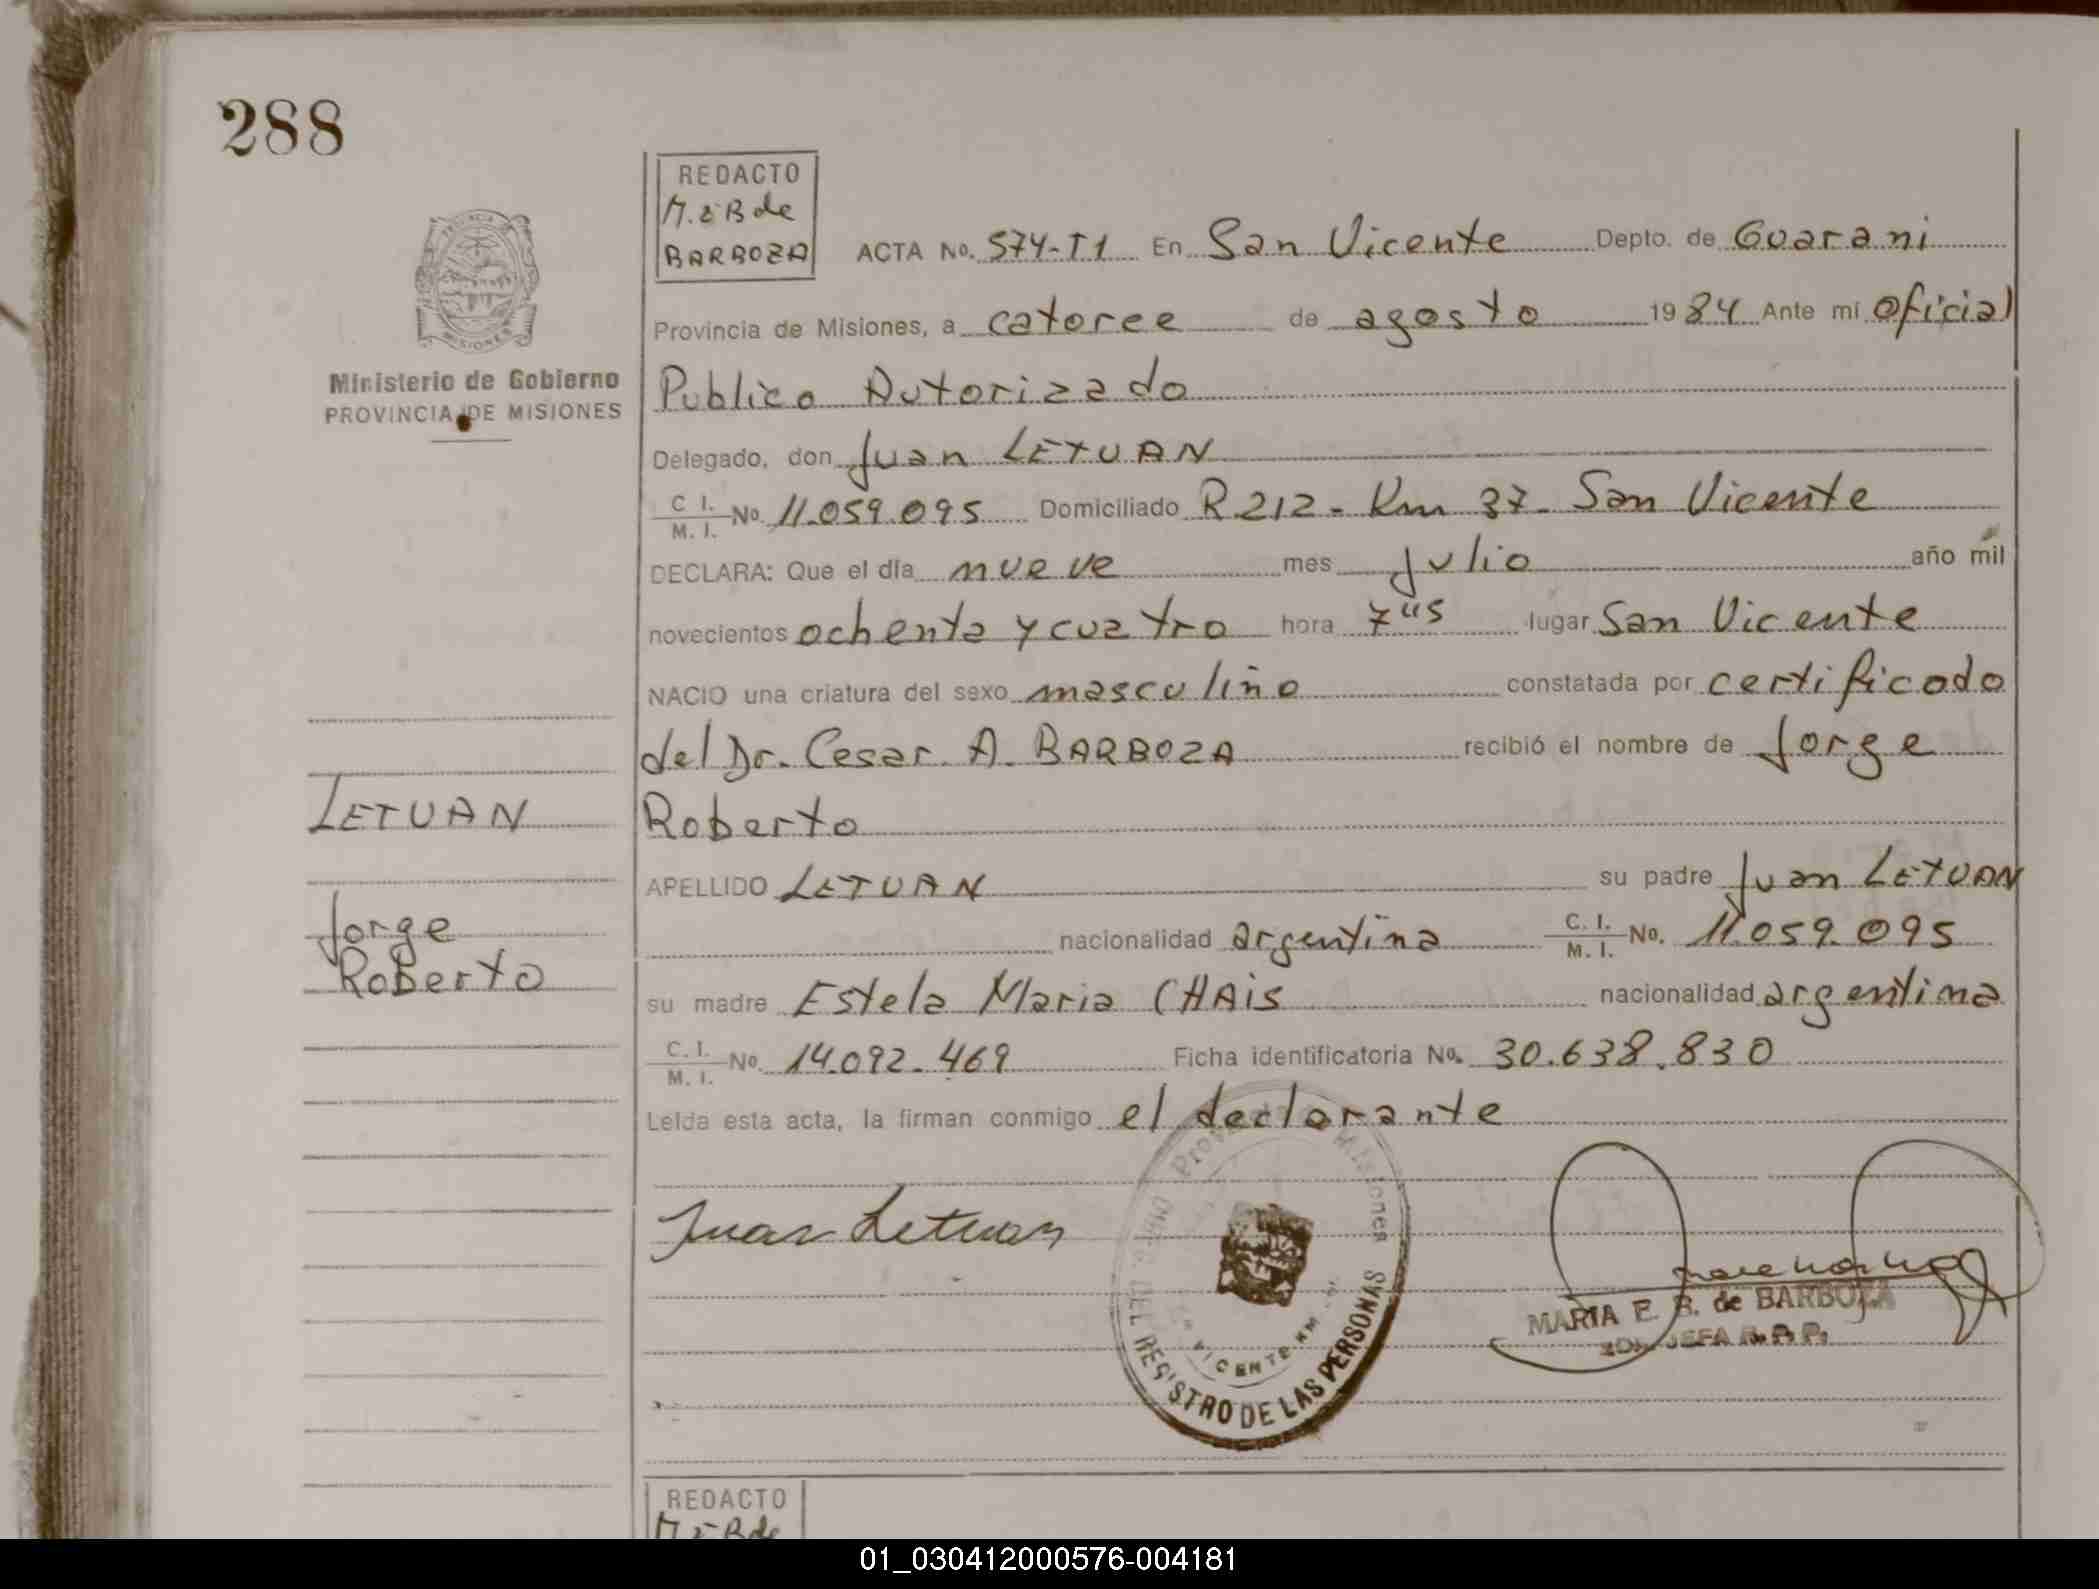 288
REDACTO
M. E B de
BARBOZA
ACTA No. 574-T1 En San Vicente Depto. de Guarani
Provincia de Misiones, a catorce de agosto 1984 Ante mi Oficial
Publico Autorizado
Ministerio de Gobierno
PROVINCIA DE MISIONES
Delegado, don Juan LETUAN
C. I. M. I. No. 11.059.095 Domiciliado R.212 - Km 37 - San Vicente
DECLARA: Que el día nueve mes Julio año mil
novecientos ochenta y cuatro hora 7 45 lugar San Vicente
NACIO una criatura del sexo masculino constatada por certificado
del Dr. Cesar A. BARBOZA recibió el nombre de Jorge
Roberto
LETUAN
Jorge
Roberto
APELLIDO LETUAN su padre Juan LETUAN
nacionalidad argentina C. I. M. I. No. 11.059.095
su madre Estela Maria CHAiS nacionalidad argentina
C. I. M. I. No. 14.092.469 Ficha identificatoria No. 30.638.830
Leída esta acta, la firman conmigo el declarante
Juan Letuan
Provincia Misiones
DEL REGISTRO DE LAS PERSONAS
VICENTE KM
MARIA E. B. de BARBOZA
JEFA R.P.P.
REDACTO
M E B de
01_030412000576-004181